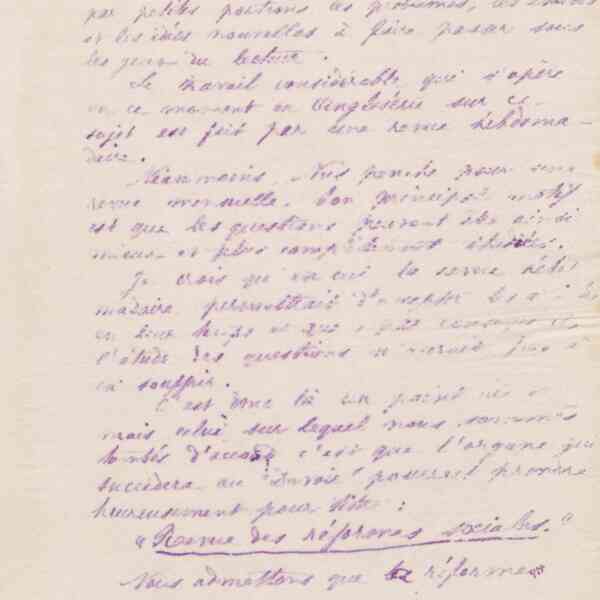 par petites portions les problèmes, les
et les idées nouvelles à faire passer sous
les yeux du lecteur.
Le travail considérable qui s'opère
en ce moment en Angleterre sur ce
sujet est fait par une revue hebdoma-
daire.
Néanmoins, pour une
revue mensuelle. Son principal motif
est que les questions peuvent être ainsi
mieux et plus complètement étudiées.
Je crois que la revue hebdo
madaire permettrait
en que
l'étude des questions n'aurait pas à
en souffrir.
C'est donc là un point
mais celui sur lequel nous sommes
tombés d'accord c'est que l'organe qui
succédera au "Devoir" pourrait prendre
heureusement pour titre :
"Revue des réformes sociales."
Nous admettons que les réformes